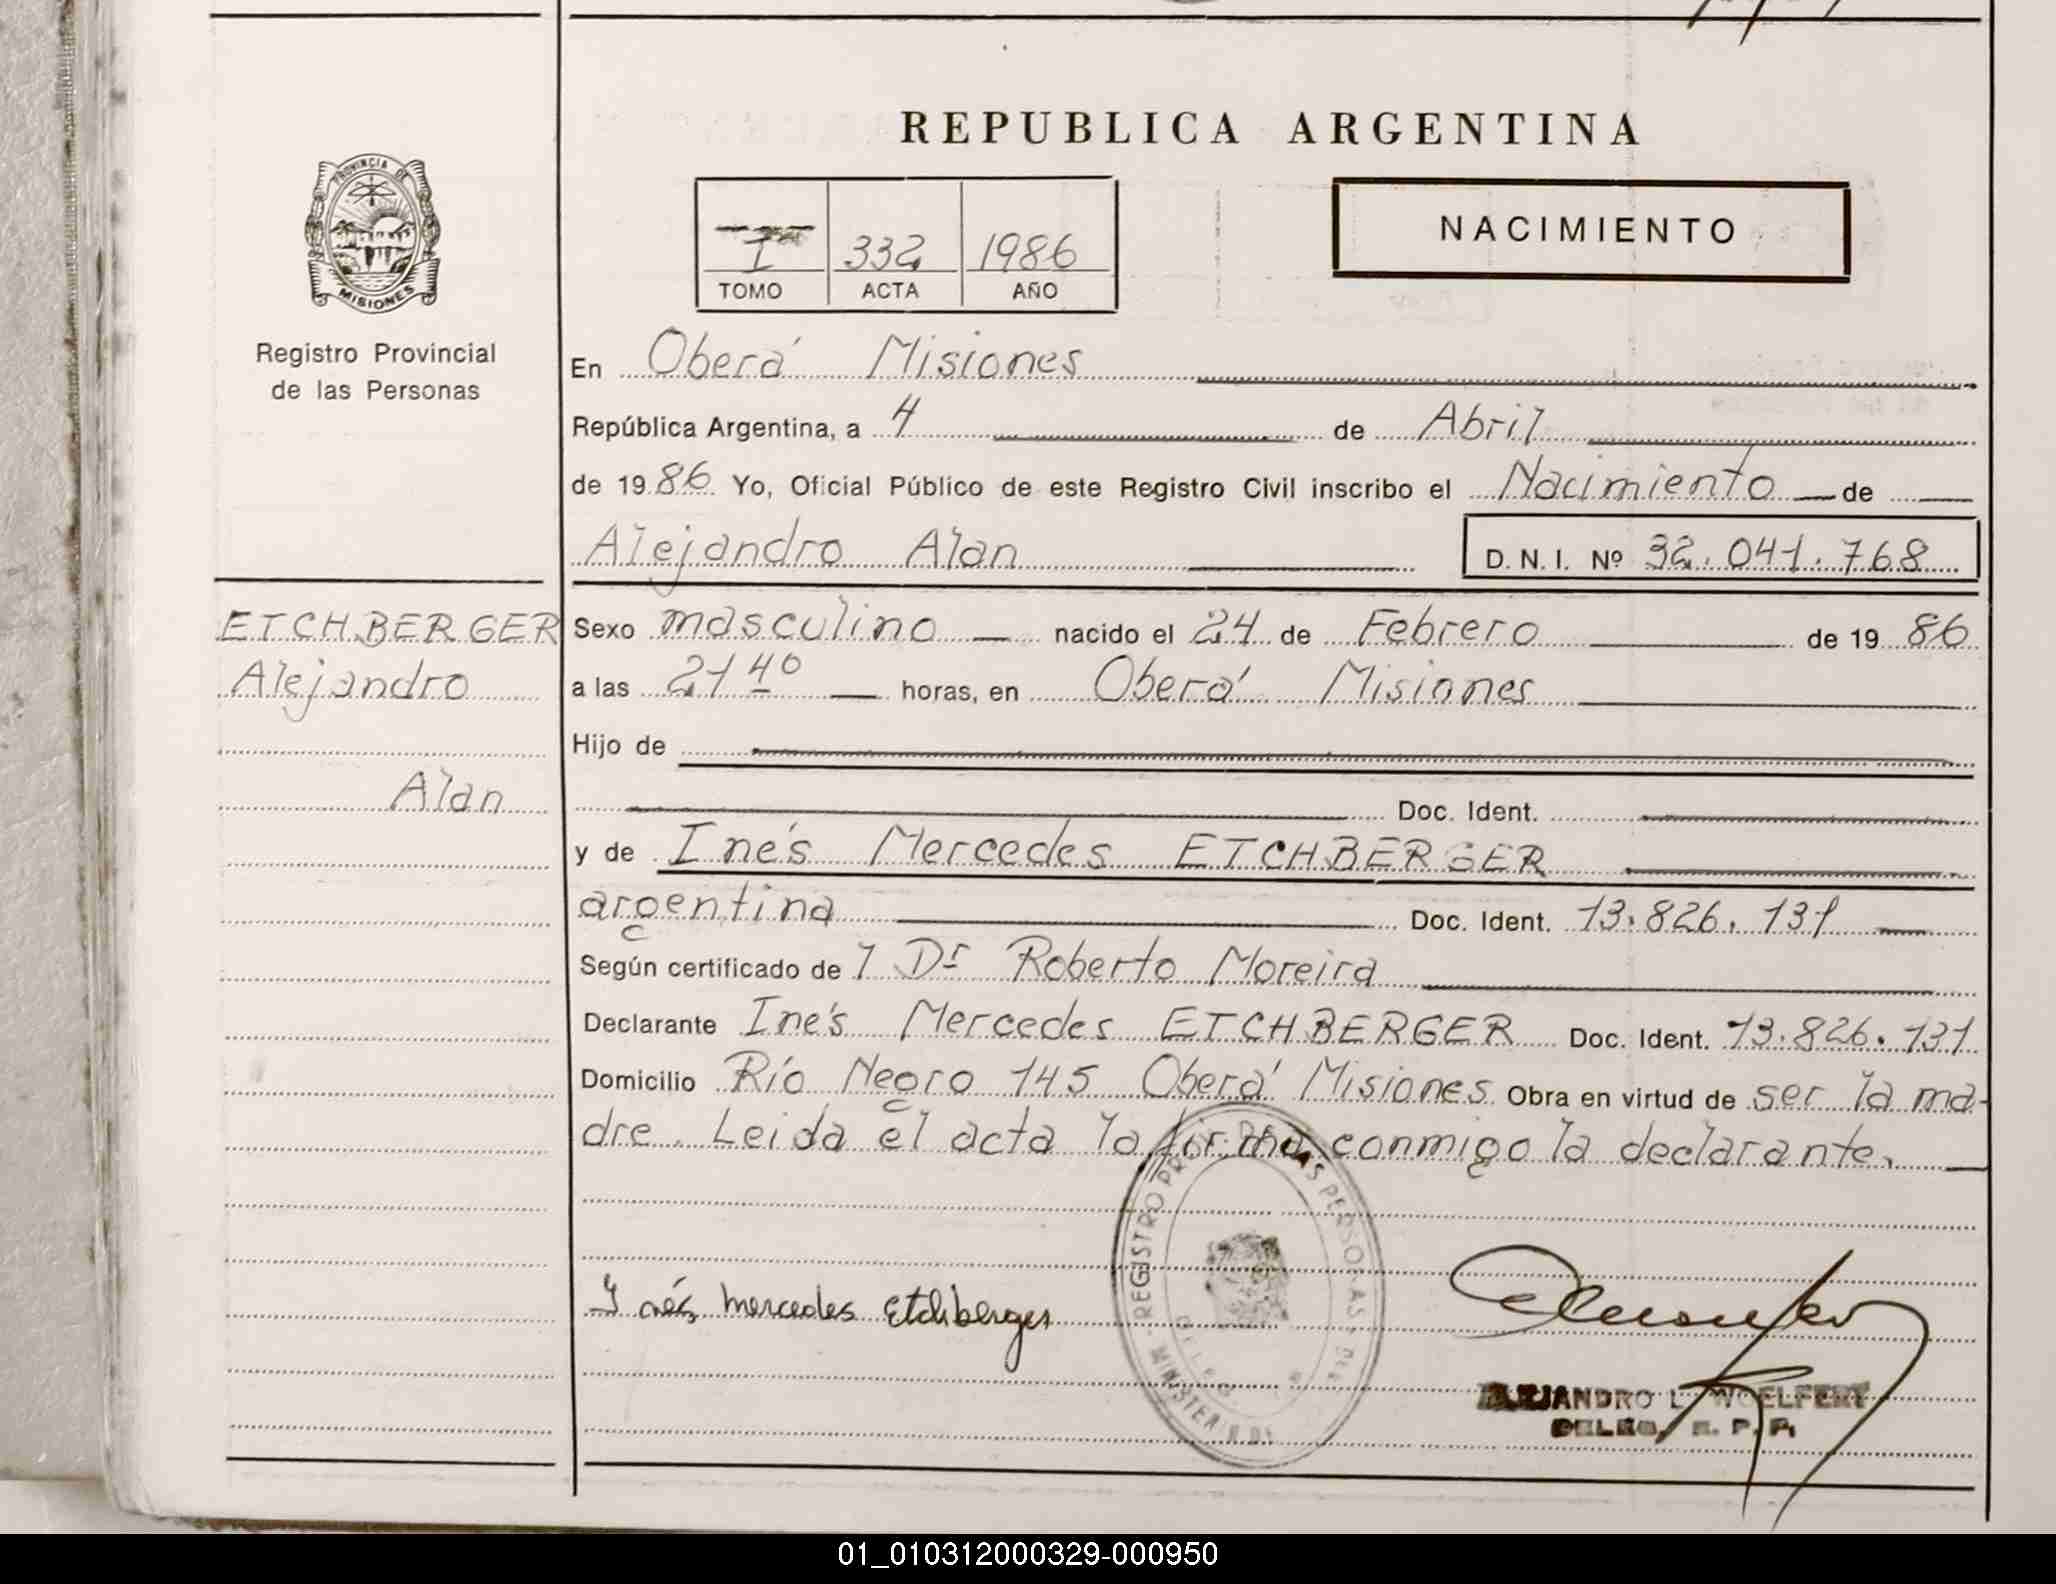 REPUBLICA ARGENTINA
PROVINCIA DE
MISIONES
Registro Provincial
de las Personas
I 332 1986
TOMO ACTA AÑO
NACIMIENTO
En Oberá Misiones
República Argentina, a 4 de Abril
de 1986 Yo, Oficial Público de este Registro Civil inscribo el Nacimiento de
Alejandro Alan D. N. I. Nº 32.041.768
ETCHBERGER
Alejandro
Alan
Sexo masculino nacido el 24 de Febrero de 1986
a las 21 40 horas, en Oberá Misiones
Hijo de
Doc. Ident.
y de Inés Mercedes ETCHBERGER
argentina Doc. Ident. 13.826.131
Según certificado de 1 Dr Roberto Moreira
Declarante Inés Mercedes ETCHBERGER Doc. Ident. 13.826.131
Domicilio Río Negro 145 Oberá Misiones Obra en virtud de ser la ma-
dre. Leida el acta la firma conmigo la declarante.
REGISTRO DE LAS PERSONAS
Inés Mercedes Etchberger
ALEJANDRO L. WOELFERT
DELEG. R. P. P.
01_010312000329-000950